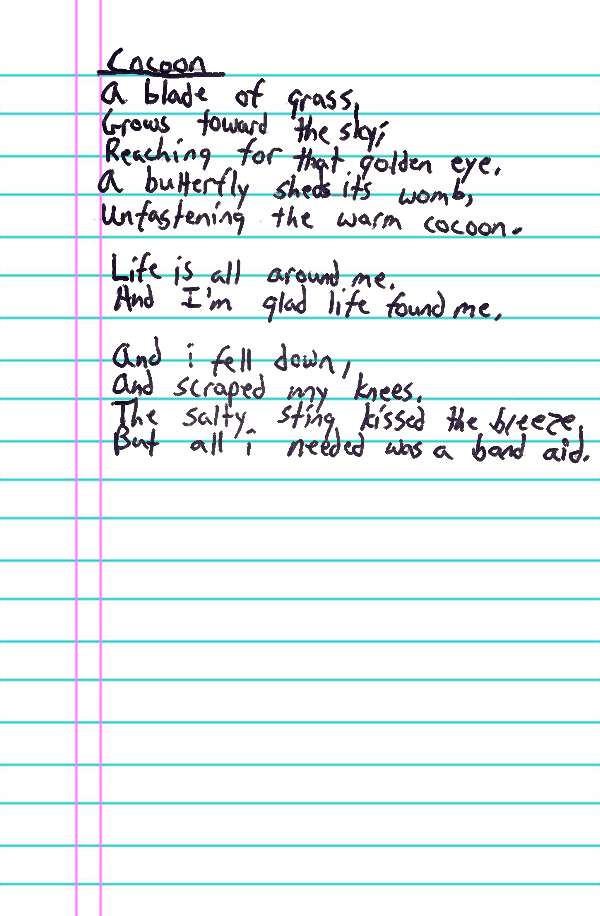 Cocoon
A blade of grass,
Grows toward the sky;
Reaching for that golden eye.
A butterfly sheds its womb,
Unfastening the warm cocoon.
Life is all around me.
And I'm glad life found me.
And i fell down,
And scraped my knees.
The salty sting kissed the breeze.
But all i needed was a band aid.